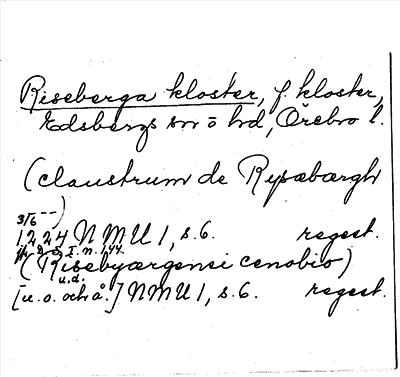 Riseberga kloster, f. kloster,
Edsbergs sn o hd, Örebro l.
(claustrum de Rysæbærgh
3/6 --)
1224 NMU 1, s. 6. regest.
jfr DS I. n. 144.
(Risebyærgensi cenobio)
u.d.
[u. o. och å.] NMU 1, s. 6. regest.